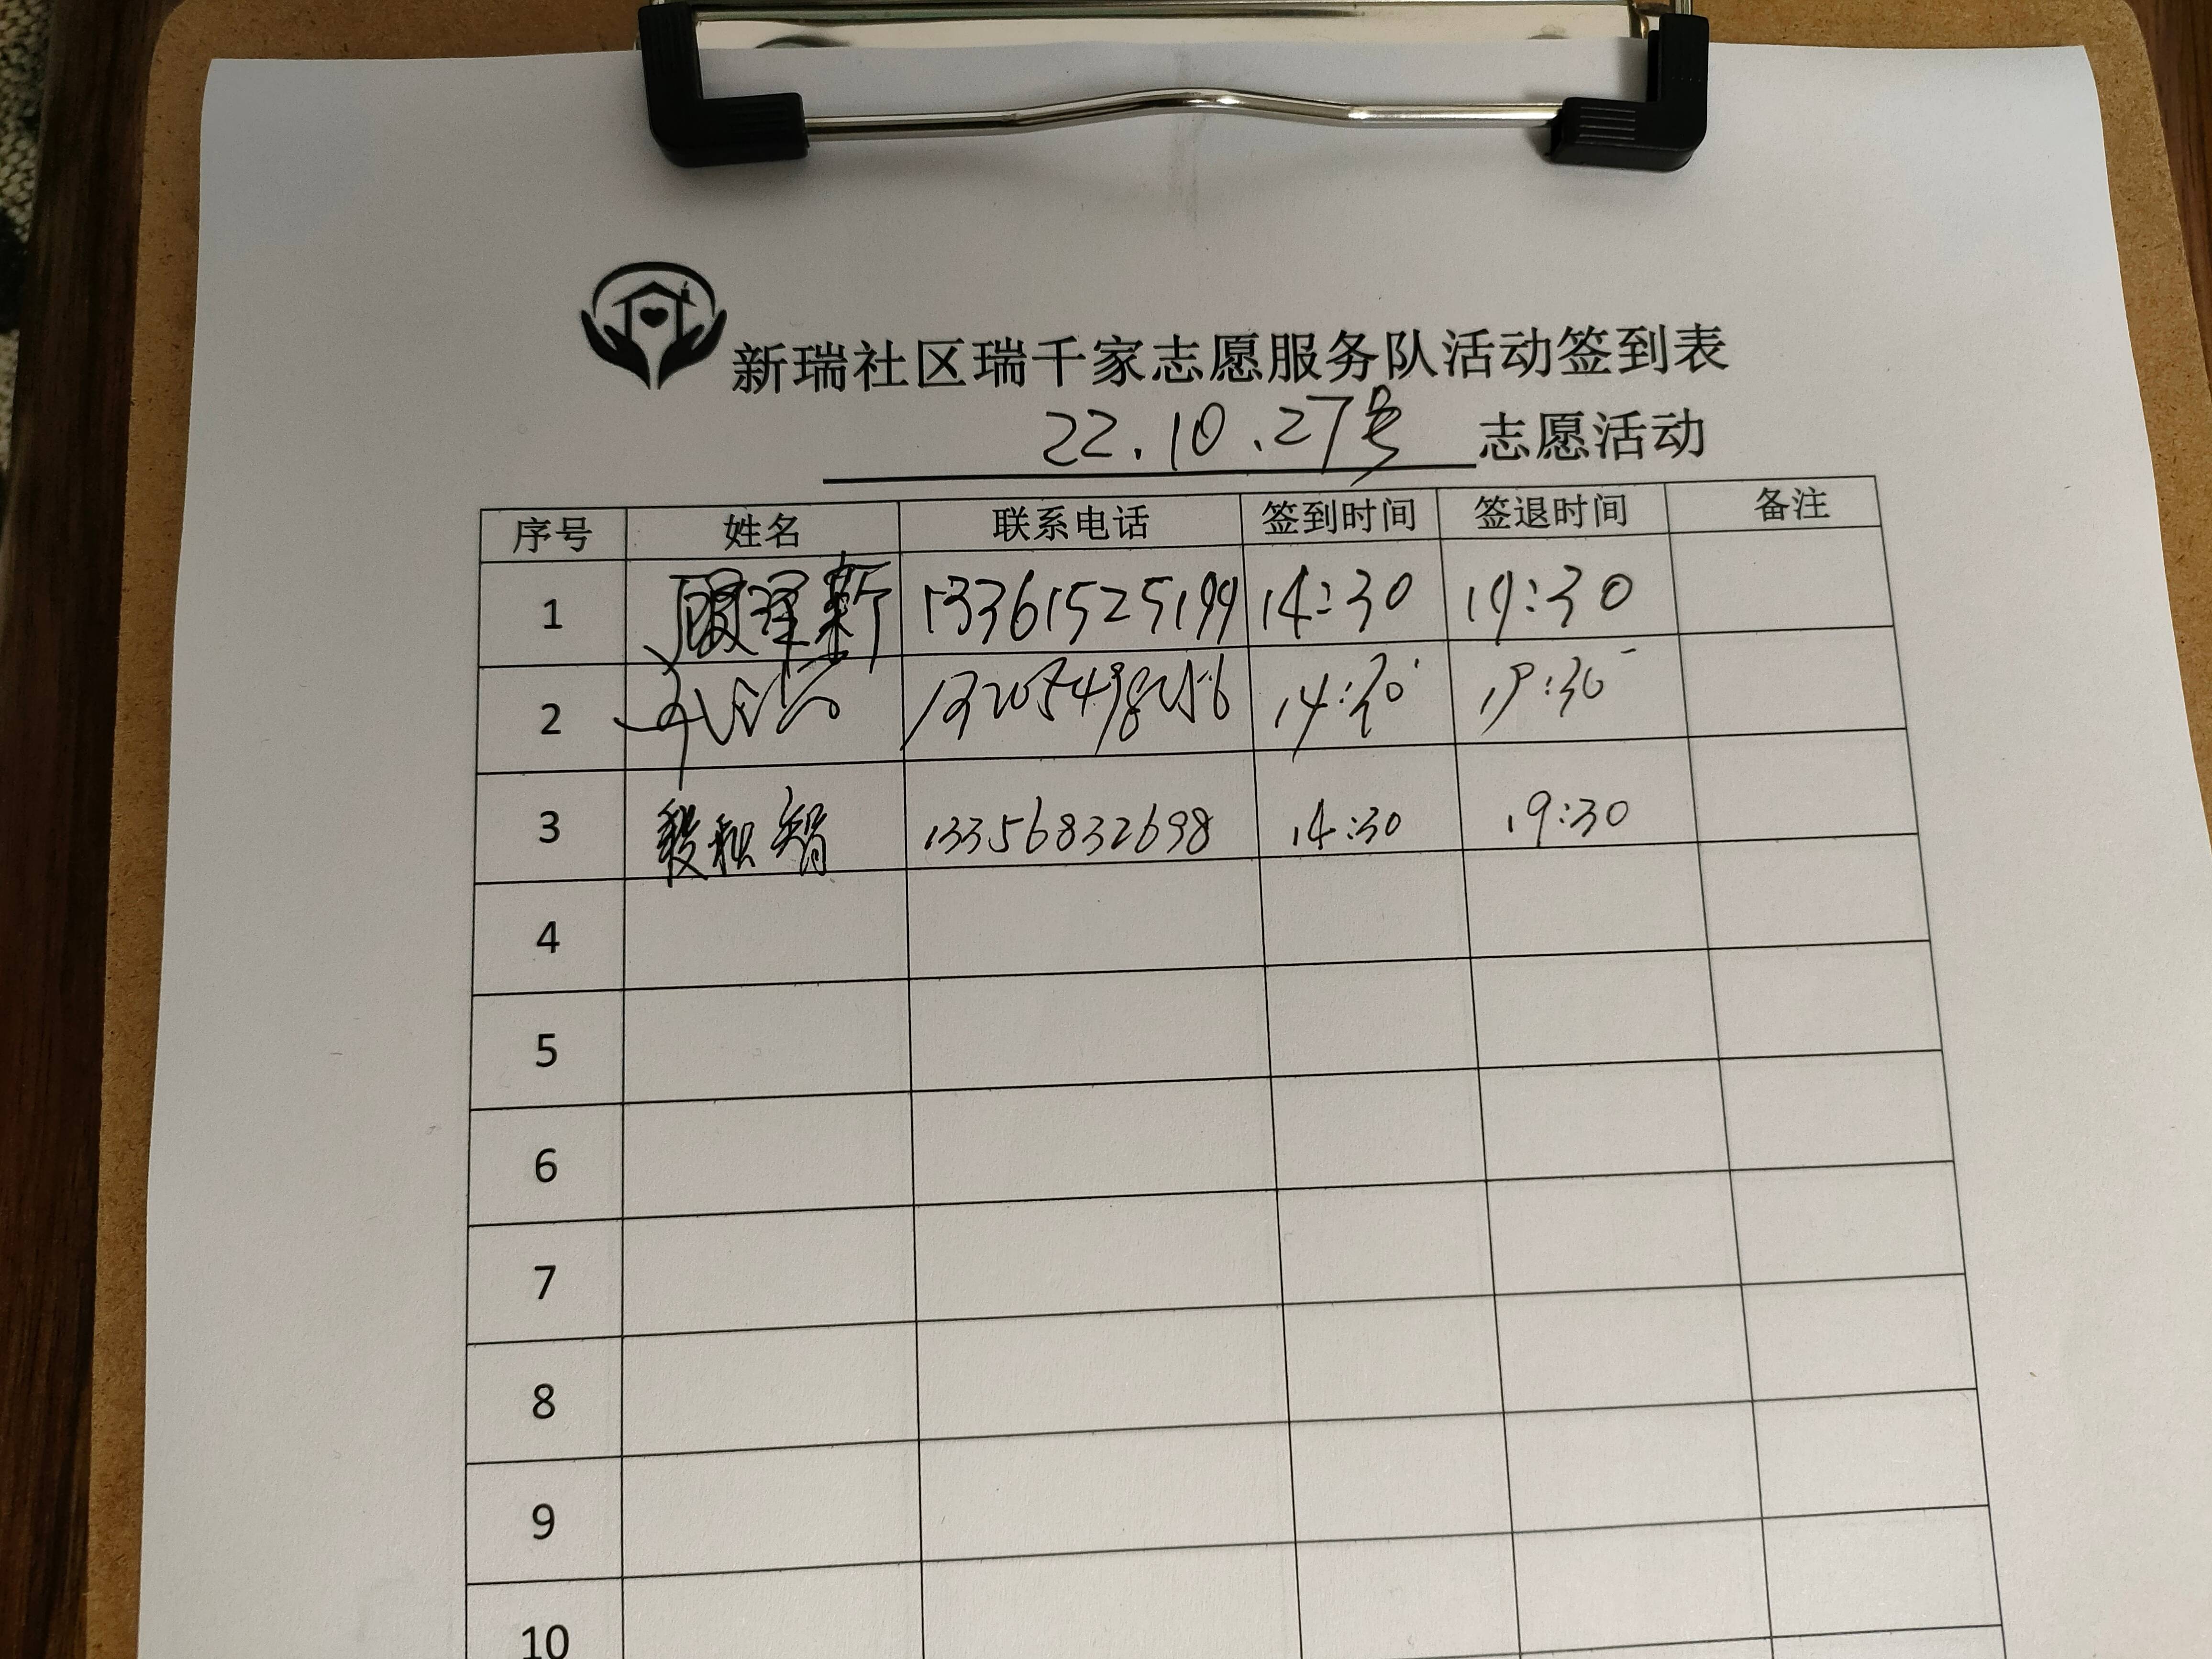 新瑞社区瑞千家志愿服务队活动签到表
22.10.27号 志愿活动
序号 姓名 联系电话 签到时间 签退时间 备注
1 顾泽新 13361525199 14:30 19:30
2 14:30 19:30
3 13356832698 14:30 19:30
4
5
6
7
8
9
10